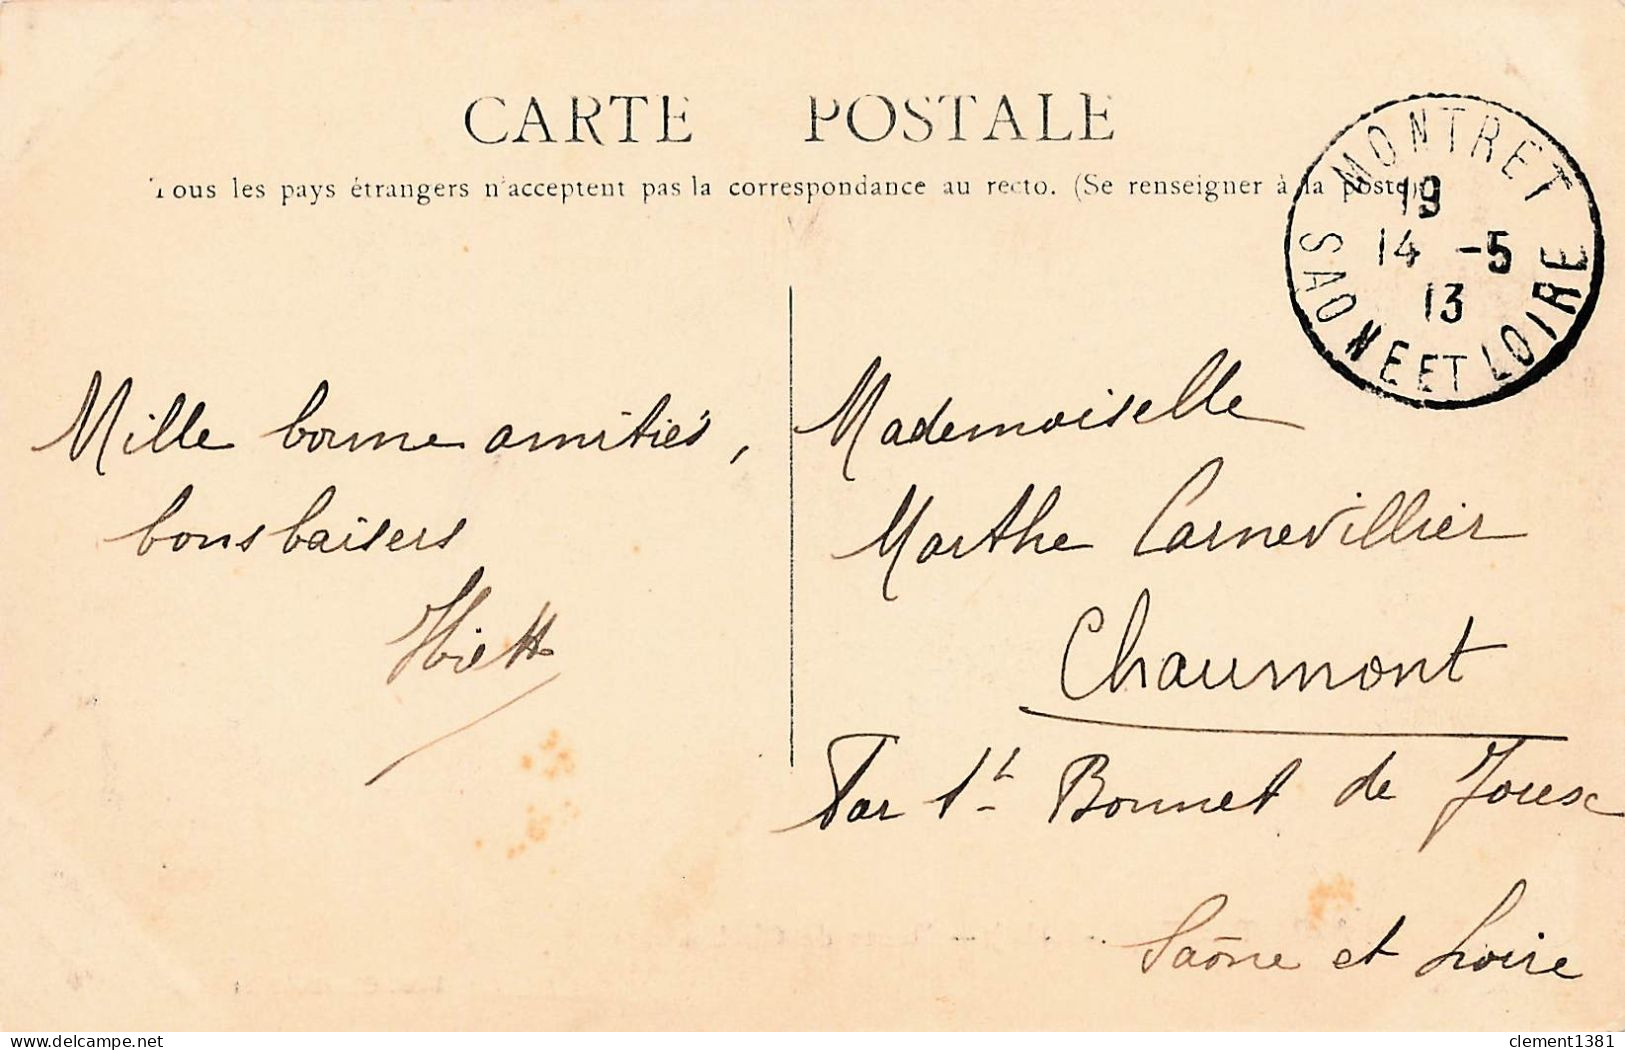 CARTE POSTALE
Tous les pays étrangers n'acceptent pas la correspondance au recto. (Se renseigner à la poste)
MONTRET
19
14 -5
13
SAONE ET LOIRE
Mille bonne amitiés,
bons baisers
Mademoiselle
Marthe Carnevillier
Chaumont
Par St Bonnet de Joux
Saône et Loire
delcampe.net
clement1381